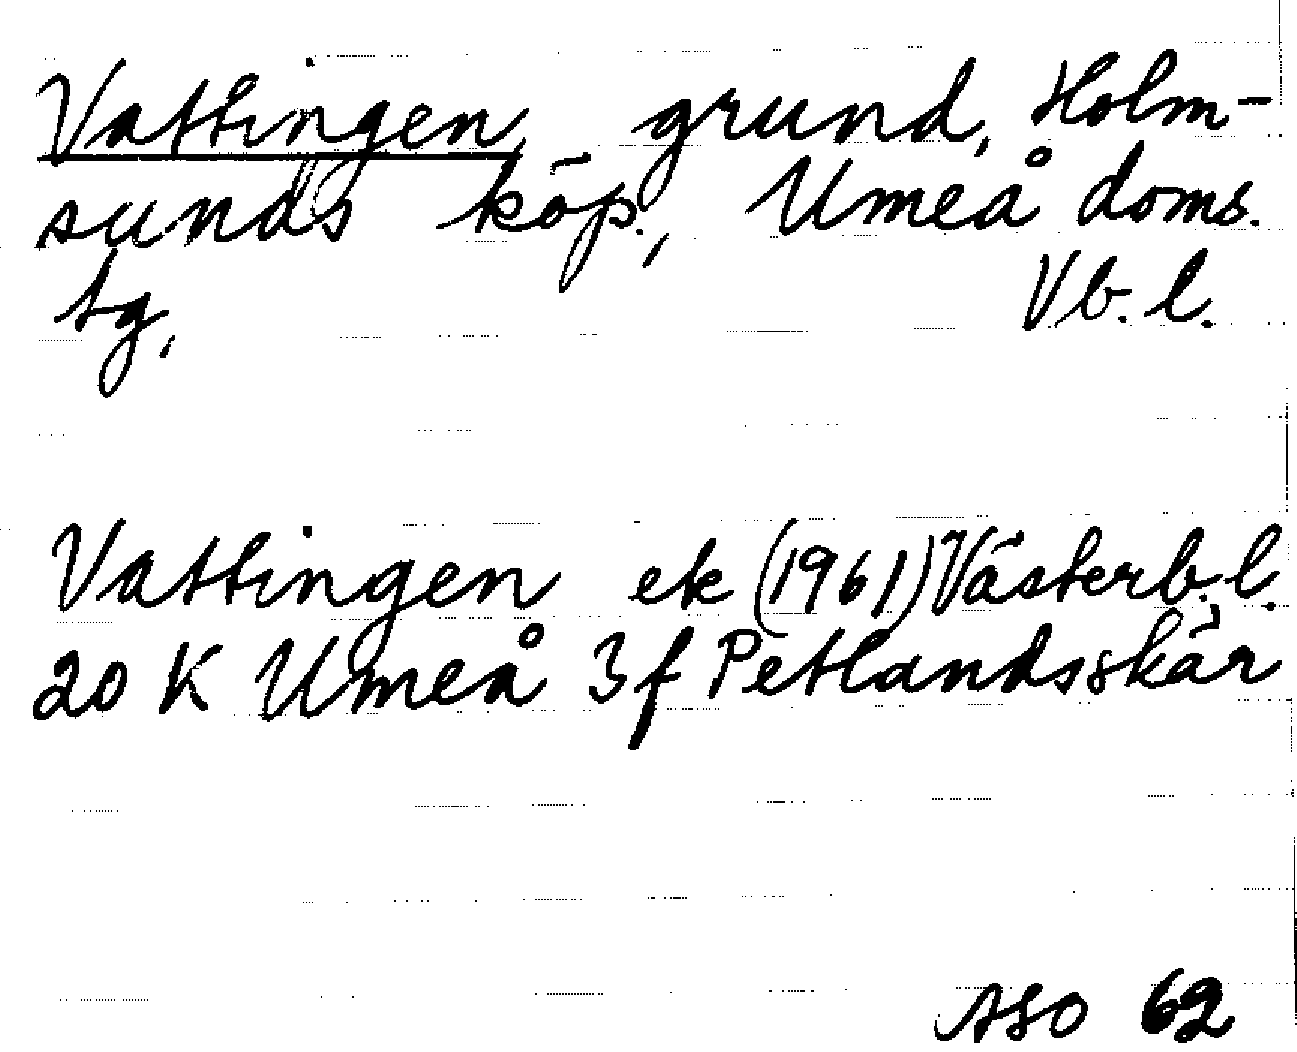 Vattingen, grund, Holm-
sunds köp., Umeå doms.
tg, Vb. l.
Vattingen ek (1961) Västerb. l.
20 K Umeå 3f Petlandsskär
ASO 62